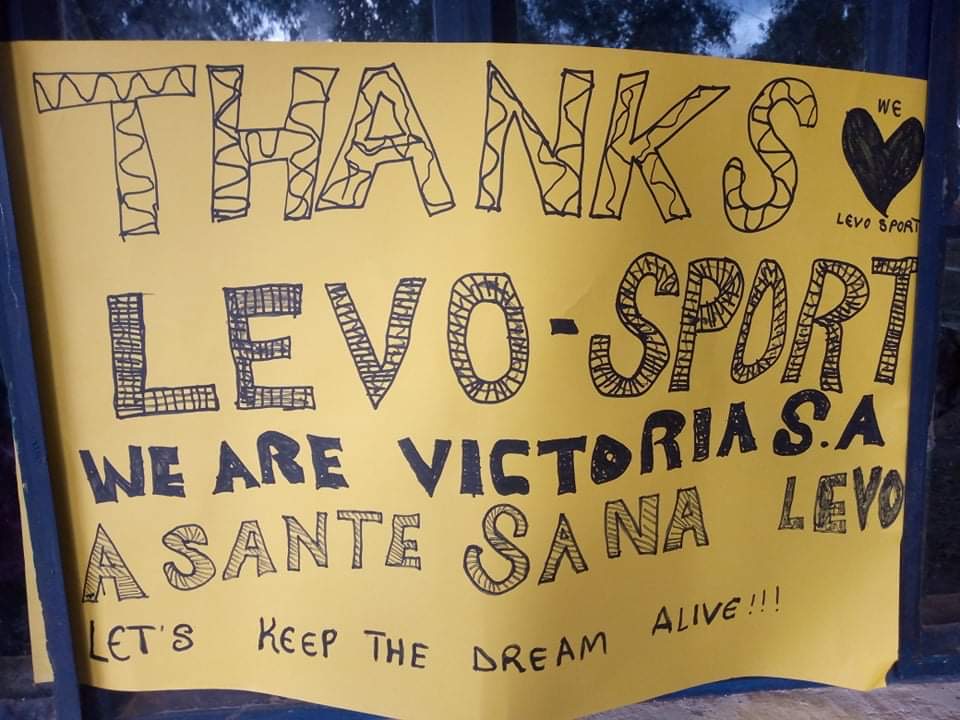 THANKS
WE
LEVO SPORT
LEVO-SPORT
WE ARE VICTORIA S.A
ASANTE SANA LEVO
LET'S KEEP THE DREAM ALIVE!!!